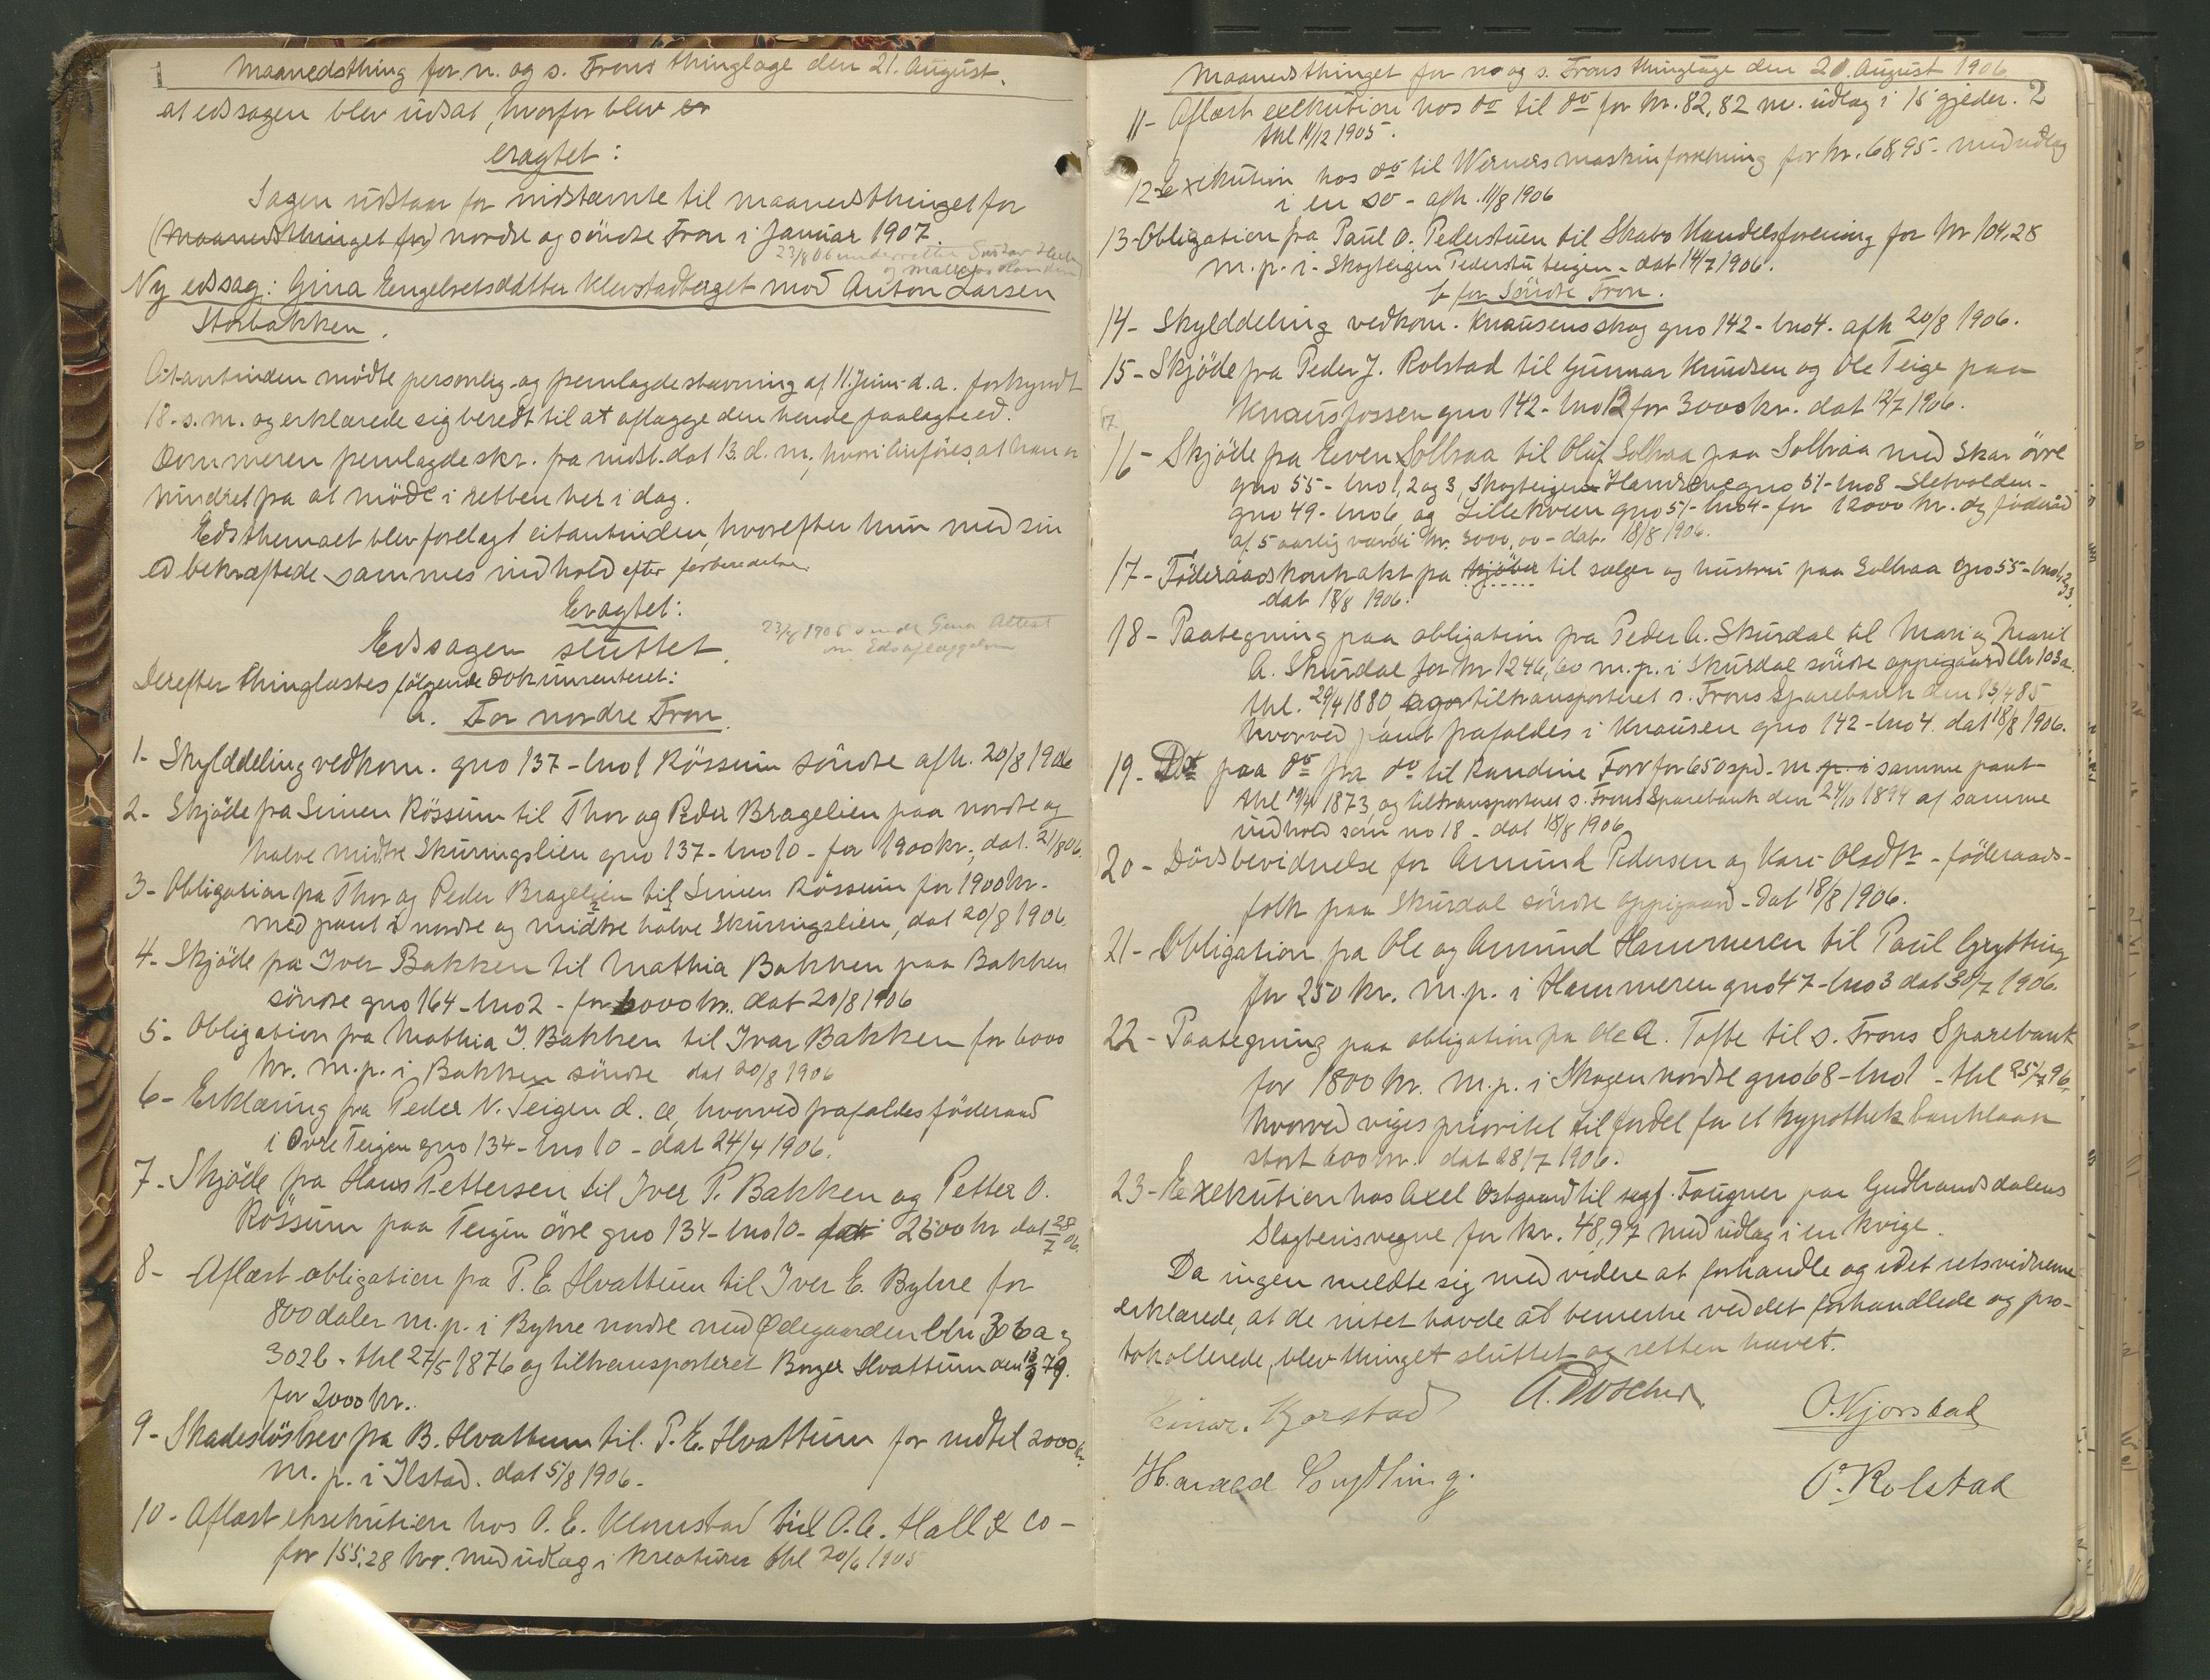 1
Maanedsthing for n. og s. Frons thinglag den 21. August.
at edssagen blev udsat, hvorfor blev er
eragtet:
Sagen udstaar for indstævnte til maanedsthinget for
(Maanedsthinget for) nordre og söndre Fron i Januar 1907.
23/8 06 underrettet Gustav
og Mathias
Ny edssag: Gina Engebretsdatter Klevstadberget mod Anton Larsen
Storbakken.
Citantinden mödte personlig og fremlagde stævning af 11. Juni d. a. forkyndt
18. s. m. og erklærede sig beredt til at aflægge den hende paalagte ed.
Dommeren fremlagde skr. fra indst. dat 13. d. m., hvori anföres at han er
hindret fra at möde i retten her i dag.
Edsthemaet blev forelagt citantinden, hvorefter hun med sin
ed bekræftede sammes indhold efter forberedelse.
Eragtet:
Edssagen sluttet.
23/8 1906 sendt Gina Attest
om Edsaflæggelsen
Derefter thinglæstes fölgende dokumenteret:
A. For nordre Fron.
1- Skylddeling vedkom. gno 137-bno 1 Rössum söndre afh. 20/8 1906
2- Skjöde fra Simen Rössum til Thor og Peder Bragelien paa nordre og
halve midtre Skuringslien gno 137-bno 10 - for 1900 kr., dat. 21/8 06.
3- Obligation fra Thor og Peder Bragelien til Simen Rössum for 1900 kr.
med pant i nordre og midtre halve Skuringslien, dat 20/8 1906.
4- Skjöde fra Iver Bakken til Mathia Bakken paa Bakken
söndre gno 164-bno 2 - for 6000 kr. dat 20/8 1906
5- Obligation fra Mathia I. Bakken til Ivar Bakken for 6000
kr. m. p. i Bakken söndre dat 20/8 1906
6- Erklæring fra Peder N. Teigen d. æ, hvorved frafaldes föderaad
i Övre Teigen gno 134-bno 10 - dat 24/4 1906.
7- Skjöde fra Hans Pettersen til Iver P. Bakken og Petter O.
Rössum paa Teigen övre gno 134-bno 10- for 2500 kr dat 28/7 06.
8- Aflæst obligation fra P. E. Hvattum til Iver E. Byhre for
800 daler m. p. i Byhre nordre med Ødegaarden lbn 306 a og
302 b. thl 27/5 1876 og tiltransporteret Borger Hvattum den 13/9 79.
for 2000 kr.
9- Skadeslösbrev fra B. Hvattum til P. E. Hvattum for indtil 2000 kr.
m. p. i Ilstad. dat 5/8 1906.
10- Aflæst eksekution hos O. E. Klomstad til O. A. Hall & Co -
for 155,28 kr. med udlæg i kreaturer thl 20/6 1905
Maanedsthinget for no og s. Frons thinglag den 21. August 1906
2
11- Aflæst exekution hos do til do for kr. 82,82 m. udlæg i 15 gjeder.
thl 11/12 1905.
12- Exekution hos do til Werners maskinforretning for kr. 68,95 - med udlæg
i en so - afh. 11/8 1906
13- Obligation fra Paul O. Pederstuen til Skabo Handelsforening for kr 104,28
m. p. i Skogteigen Pederstuteigen - dat 14/7 1906.
b for Söndre Fron.
14- Skylddeling vedkom. Knausens skog gno 142-bno 4. afh 20/8 1906.
15- Skjöde fra Peder J. Rolstad til Gunnar Knudsen og Ole Teige paa
Knausfossen gno 142-bno 12 for 3000 kr. dat 12/7 1906.
16- Skjöde fra Even Solbraa til Oluf Solbraa paa Solbraa med Skar övre
gno 55-bno 1, 2 og 3, Skogteigen gno 51-bno 8 Sletvolden-
gno 49-bno 6, og Lillekveen gno 51-bno 4- for 12000 kr. og föderåd
af 5 aarlig værdi kr. 3000,00 - dat. 18/8 1906.
17- Föderaadskontrakt fra kjöber til sælger og hustru paa Solbraa gno 55-bno 1, 2, 3.
dat 18/8 1906.
18- Paategning paa obligation fra Peder A. Skurdal til Mari og Marit
A. Skurdal for kr 1246,60 m. p. i Skurdal söndre oppigaard lbn 103 a
thl. 29/4 1880, tiltransporteret s. Frons Sparebank den 13/4 85
hvorved pant frafaldes i Knausen gno 142-bno 4. dat 18/8 1906.
19- Do paa do fra do til Randine Forr for 650 spd. m. p. i samme pant
thl 19/4 1873, og tiltransporteret s. Frons Sparebank den 24/10 1894 af samme
indhold som no 18 - dat 18/8 1906.
20- Dödsbevidnelse for Amund Pedersen og Kari Olsdtr - föderaads-
folk paa Skurdal söndre oppigaard - dat 18/8 1906.
21- Obligation fra Ole og Amund Hammeren til Paul Grytting
for 250 kr. m. p. i Hammeren gno 47-bno 3 dat 30/7 1906.
22- Paategning paa obligation fra Ole A. Tofte til s. Frons Sparebank
for 1800 kr. m. p. i Skogen nordre gno 68-bno 1 - thl 25/7 96,
hvorved viges prioritet til fordel for et hypothekbanklaan
stort 600 kr. dat 28/7 1906.
23- Exekution hos Axel Ostgaard til sagf. Fougner paa Gudbrandsdalens
Slagteris vegne for kr. 48,97 med udlæg i en kvige.
Da ingen meldte sig med videre at forhandle og idet retsvidnerne
erklærede, at de intet havde at bemerke ved det forhandlede og pro-
tokollerede, blev thinget sluttet og retten hævet.
Einar Kjorstad
O. Kjorstad
Harald Grytting.
P. Rolstad